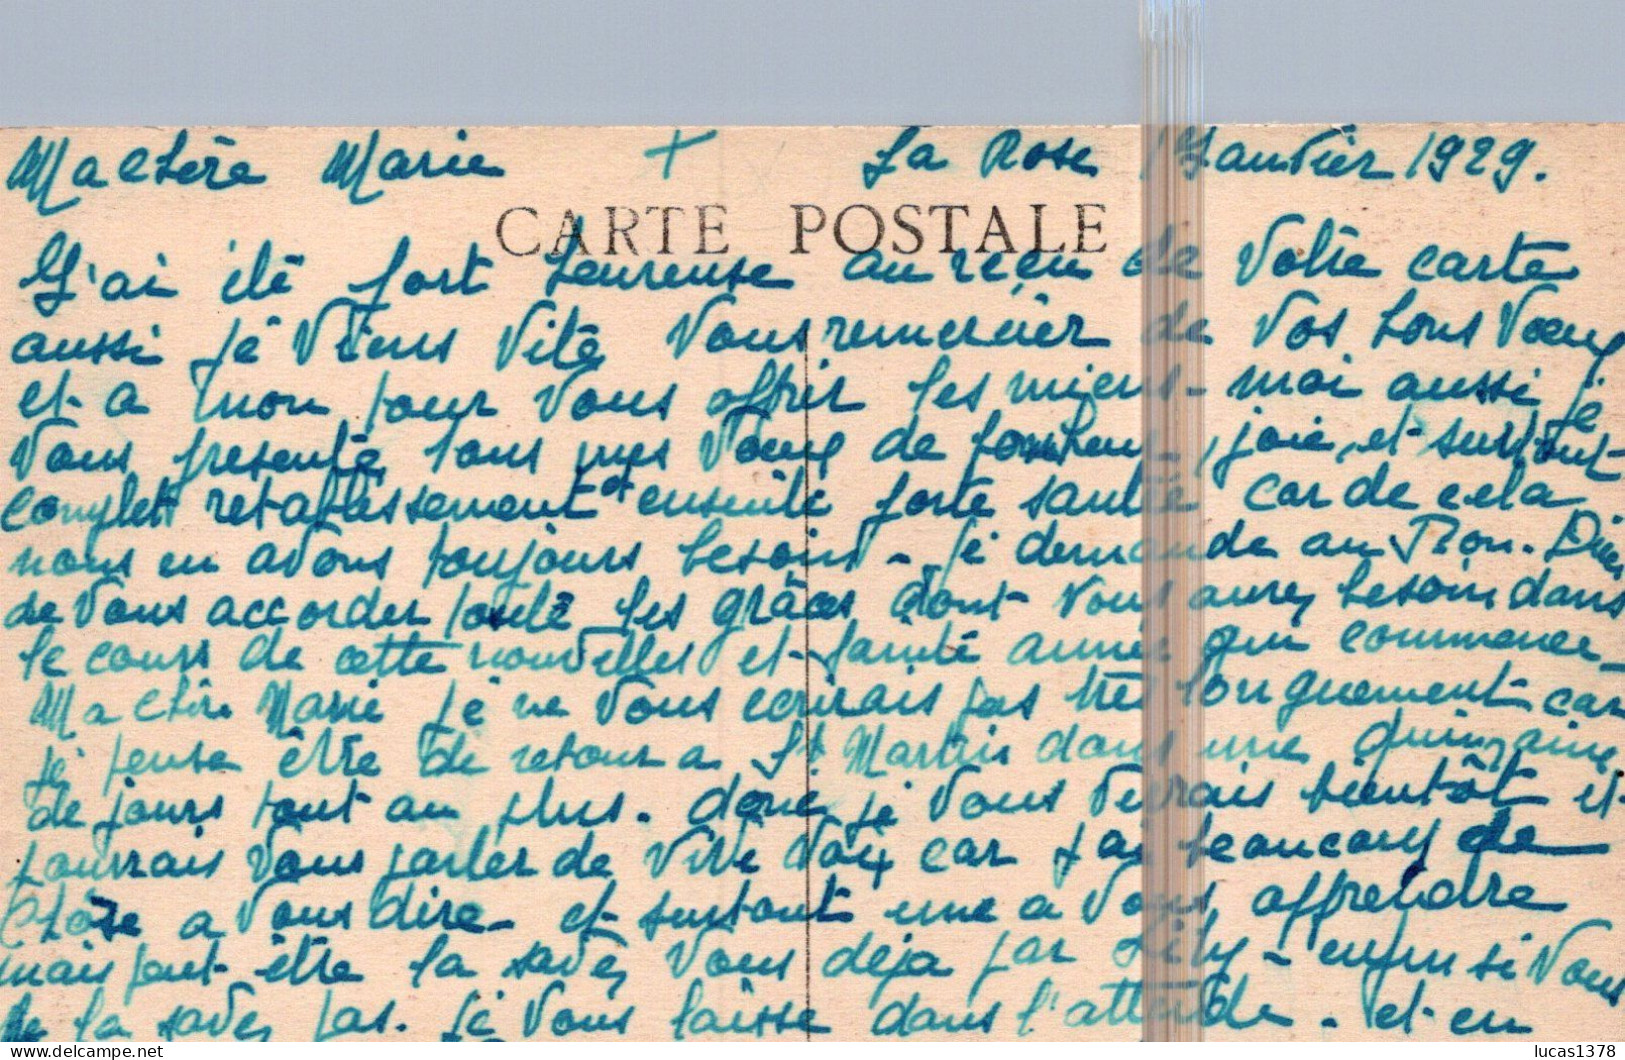 Ma chère Marie + La Rose 1 Janvier 1929.
CARTE POSTALE
J'ai été fort heureuse au reçu de votre carte
aussi je viens vite vous remercier de vos bons vœux
et a mon tour vous offrir les miens - moi aussi je
vous presente tous mes vœux de bonheur, joie, et surtout
complet retablissement et ensuite forte santé car de cela
nous en avons toujours besoin - je demande au Bon. Dieu
de vous accorder toute les grâces dont vous aurez besoin dans
le cours de cette nouvelles et sainte année qui commence -
Ma chère Marie je ne vous ecrirais pas très longuement car
je pense être de retour a St Martin dans une quinzaine
de jours tout au plus. donc je vous verrais bientôt et
pourrais vous parler de vive voix car j'ai beaucoup de
chose a vous dire et surtout une a vous apprendre
mais peut-être la savez vous deja par Lily - enfin si vous
ne la savez pas. je vous laisse dans l'attente - et en
lucas1378